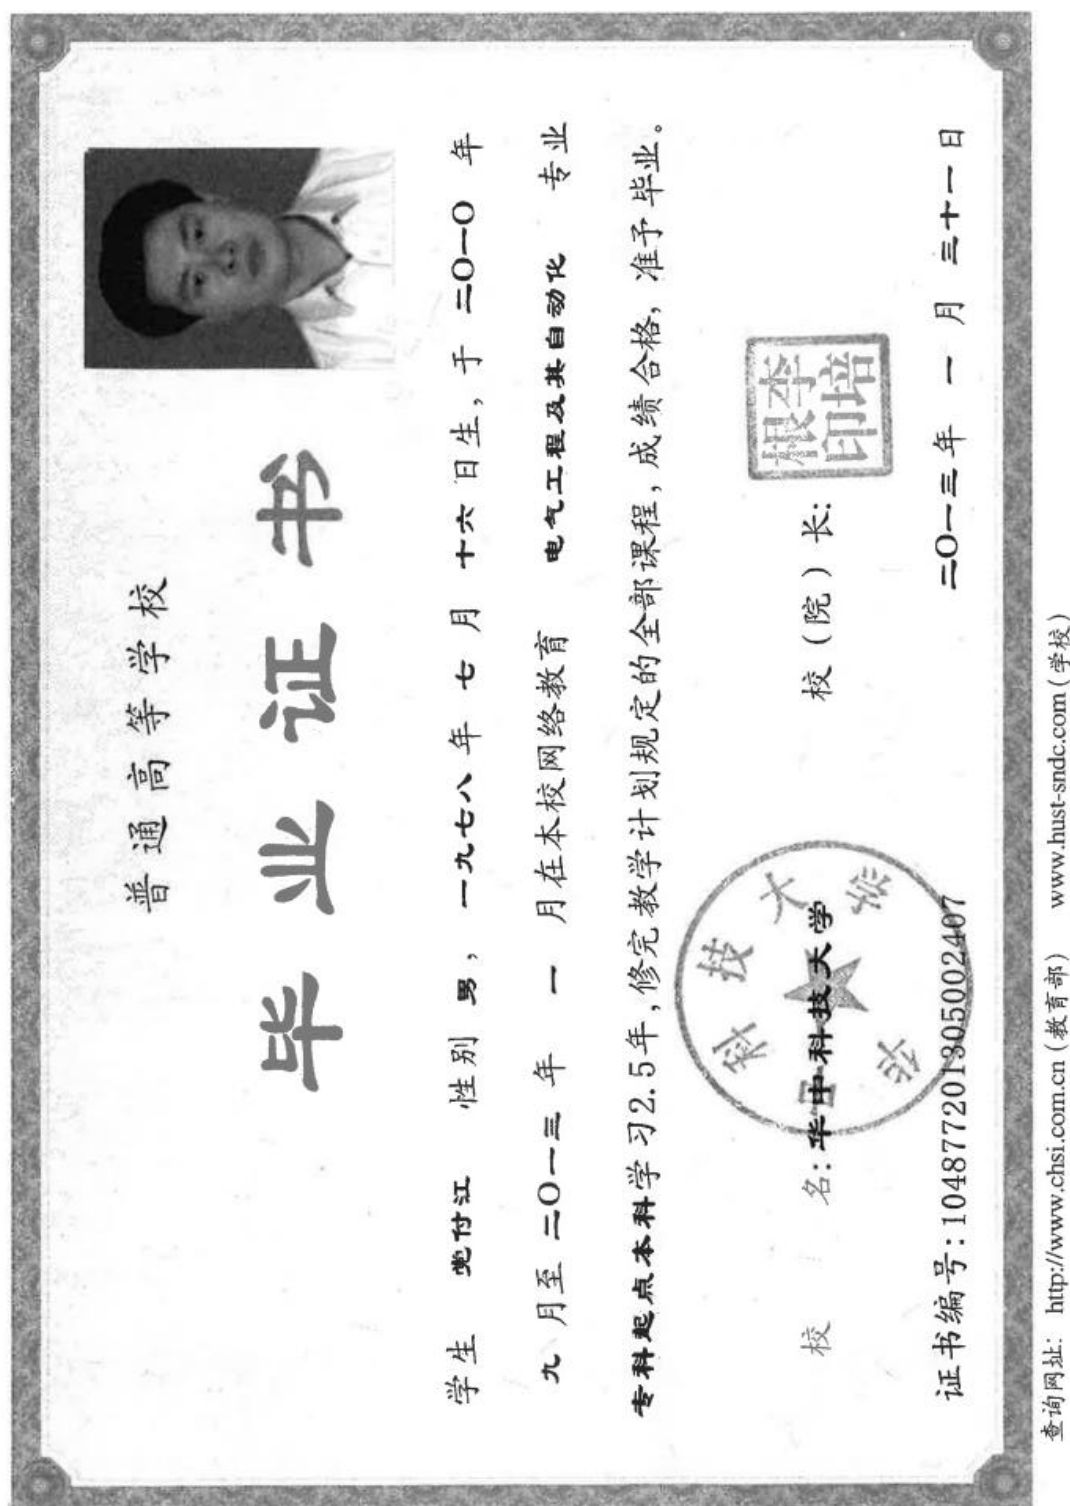 普通高等学校
毕业证书
学生 党付江 性别 男，一九七八年 七 月 十六 日生，于 二〇一〇 年
九 月至 二〇一三 年 一 月在本校网络教育 电气工程及其自动化 专业
专科起点本科学习2.5年，修完教学计划规定的全部课程，成绩合格，准予毕业。
校 名：华中科技大学 校（院）长：
李培根印
华中科技大学
证书编号：104877201305002407 二〇一三年 一 月 三十一日
查询网址： http://www.chsi.com.cn（教育部） www.hust-sndc.com（学校）